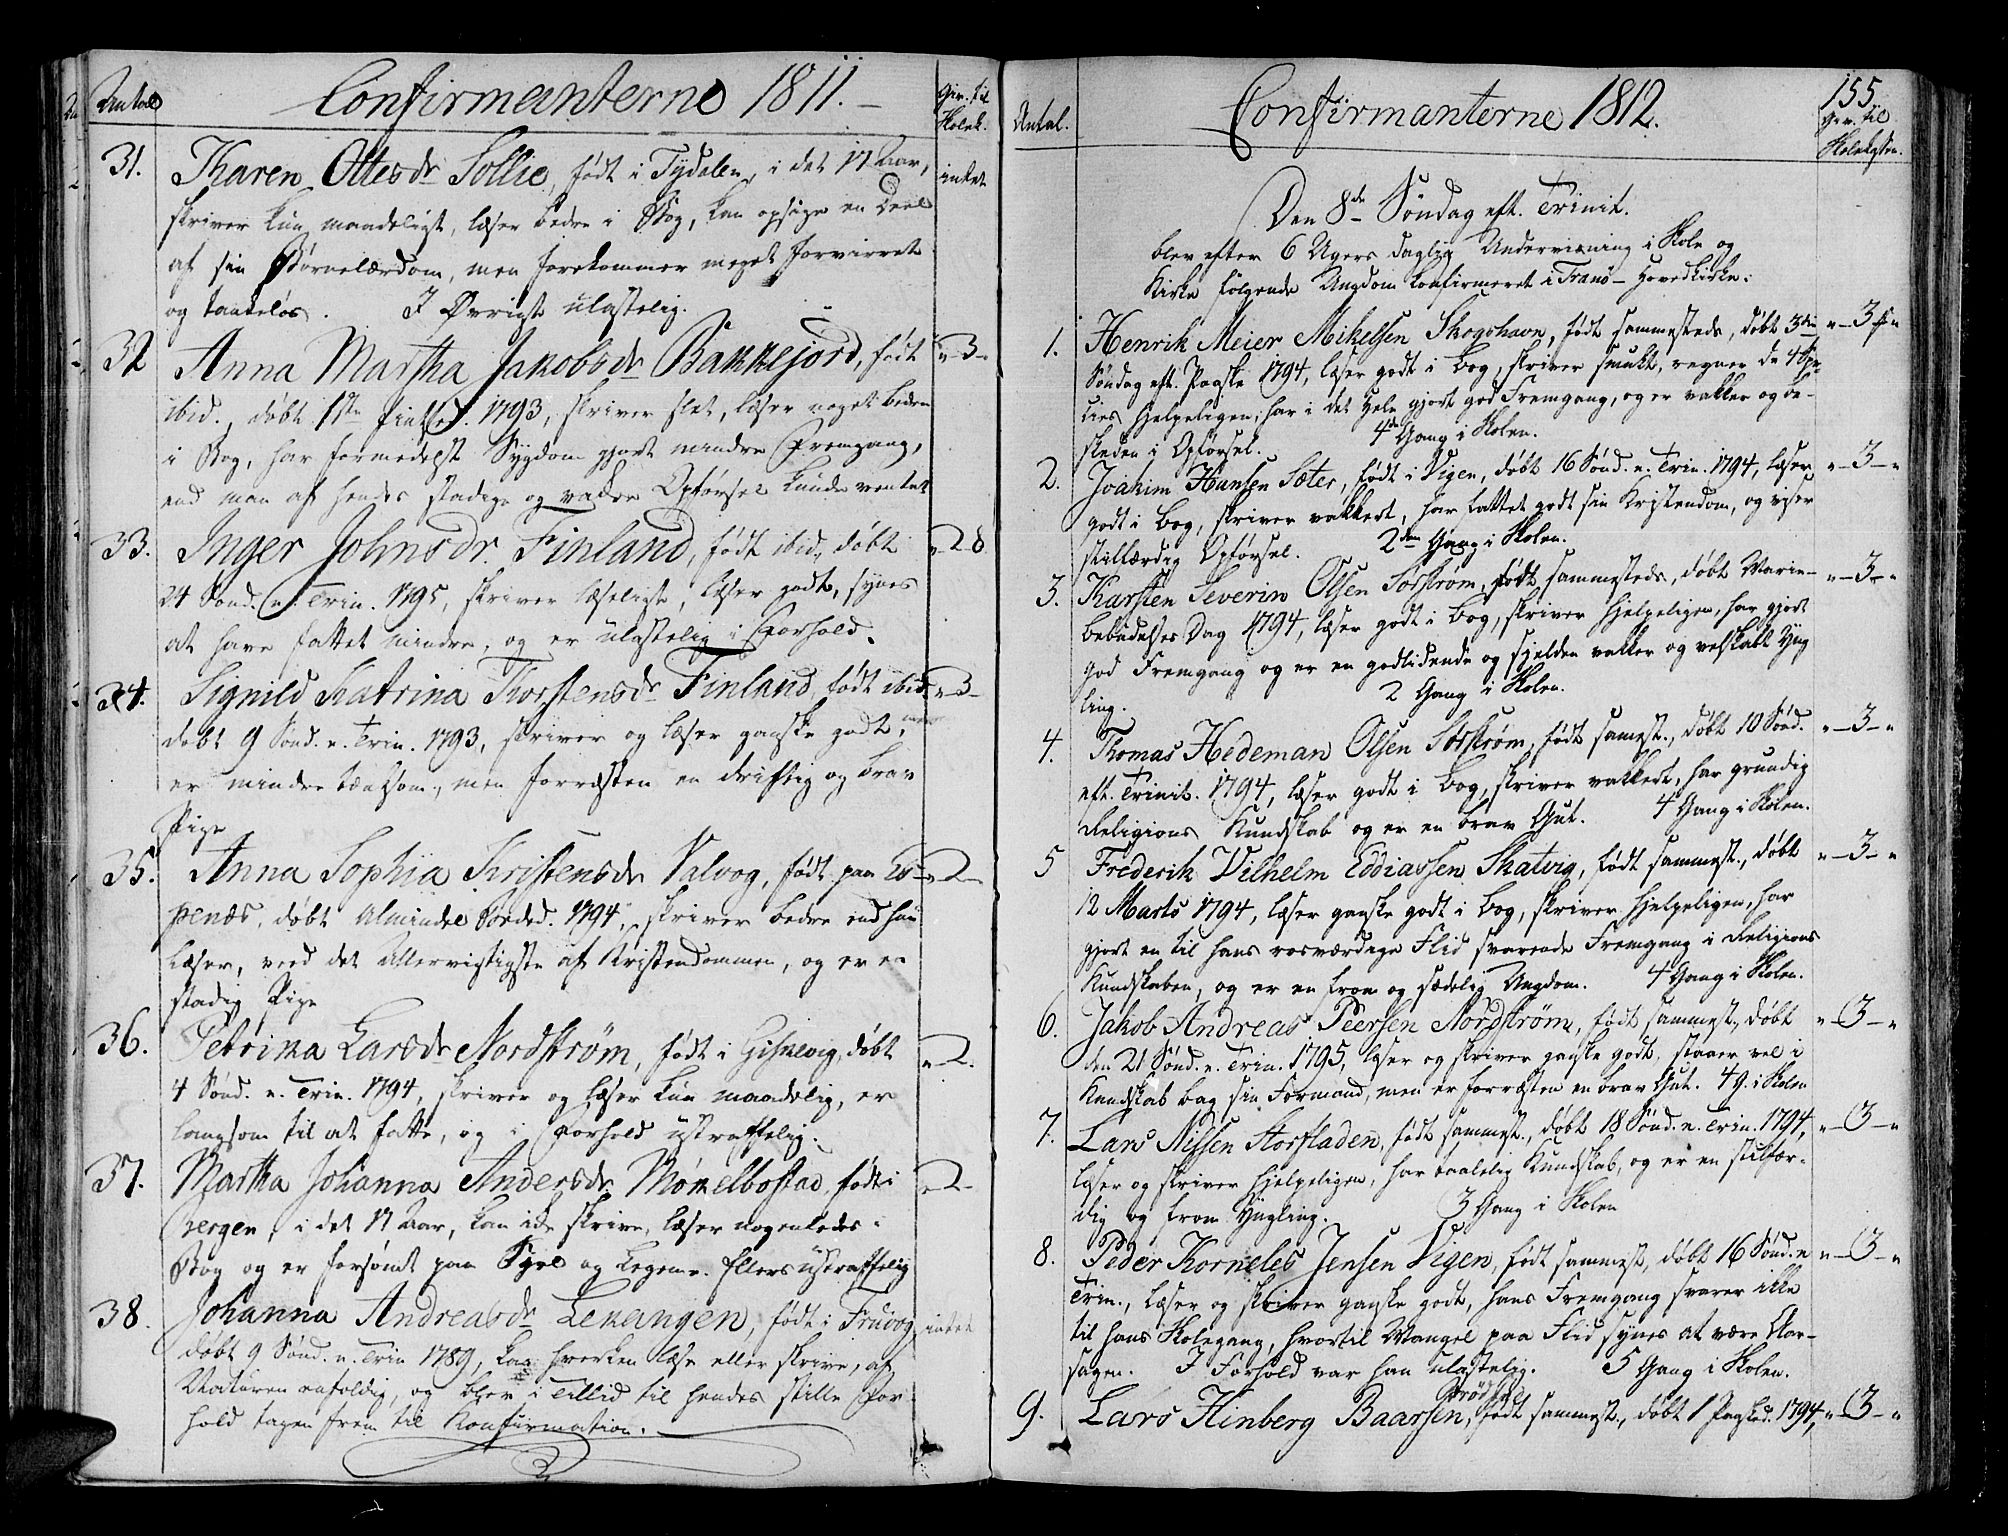 Antal
Confirmanterne 1811.
Giv. til
Skolek.
31. Karen Ottesdr Sollie, født i Tydalen, i det 17 Aar, intet
skriver kun maadeligt, læser bedre i Bog, kan opsige en Deel
af sin Børnelærdom, men forekommer meget forvirret
og tankeløs. I Øvrigt ulastelig.
32 Anna Martha Jakobsdr Bakkejord, født "-3-
ibid., døbt 1ste 1793, skriver slet, læser noget bedre
i Bog, har formedelst Sygdom gjort mindre Fremgang,
end man af hendes stadige og vakre Opførsel kunde ventet
33. Inger Johnsdr. Finland, født ibid., døbt "28
24 Sønd. n. Trin. 1795, skriver læseligt, læser godt, synes
at have fattet mindre, og er ulastelig i Forhold.
34. Signild Katrina Thorstensdr Finland, født ibid. "-3-
døbt 9 Sønd. n. Trin. 1793, skriver og læser ganske godt,
er mindre tænksom, men forresten en driftig og brav
Pige
35. Anna Sophia Kristensdr Valvog, født paa Es- "-2-
penæs, døbt Almindel Bededd. 1794, skriver bedre end hun
læser, veed det Allervigtigste af Kristendommen, og er en
stadig Pige
36. Petrika Larsdr Nordstrøm, født i Gisnevig, døbt "-2.
4 Sønd. n. Trin. 1794, skriver og læser kun maadelig, er
langsom til at fatte, og i Forhold ustraffelig.
37. Martha Johanna Andersdr. Møkelbostad, født i "2-
Bergen, i det 17 Aar, kan ikke skrive, læser nogenledes i
Bog og er forsømt paa Sjæl og Legeme. Ellers ustraffelig
38. Johanna Andreasdr Lekangen, født i Truvog, intet
døbt 9 Sønd. n. Trin 1789, kan hverken læse eller skrive, af
Naturen enfoldig, og blev i Tillid til hendes stille For-
hold tagen frem til Konfirmation.
Antal.
Confirmanterne 1812.
155
Giv. til
Skolekassen.
Den 8de Søndag eft. Trinit.
blev efter 6 Ugers daglig Underviisning i Skole og
Kirke følgende Ungdom konfirmeret i Tranø-Hovedkirke:
1. Henrik Meier Mikelsen Skogshavn, født sammesteds, døbt 3die "-3-"
Søndag eft. Paaske 1794, læser godt i Bog, skriver smukt, regner de 4 Spe-
cies hjelpeligen, har i det Hele gjort god Fremgang, og er vakker og be-
skeden i Opførsel. 4de Gang i Skolen.
2. Joakim Hansen Sæter, født i Vigen, døbt 16 Sønd. n. Trin. 1794, læser "-3-"
godt i Bog, skriver vakkert, har fattet godt sin Kristendom, og viser
stilfærdig Opførsel. 2den Gang i Skolen.
3. Karsten Severin Olsen Sørstrøm, født sammesteds, døbt Marie- "-3-"
bebudelses Dag 1794, læser godt i Bog, skriver hjelpeligen, har gjort
god Fremgang og er en godlidende og sjelden vakker og velskabt Yng
ling. 2 Gang i Skolen.
4. Thomas Hedeman Olsen Sørstrøm, født samest., døbt 10 Sønd. "-3-"
eft. Trinit. 1794, læser godt i Bog, skriver vakkert, har grundig
Religions Kundskab og er en brav Gut. 4 Gang i Skolen.
5 Frederik Vilhelm Eddiassen Skatvig, født sammest., døbt "-3-"
12 Marts 1794, læser ganske godt i Bog, skriver hjelpeligen, har
gjort en til hans rosværdige Flid svarende Fremgang i Religions
Kundskaben, og er en from og sædelig Ungdom. 4 Gang i Skolen.
6. Jakob Andreas Peersen Nordstrøm, født sammest., døbt "-3-"
den 21 Sønd. n. Trin. 1795, læser og skriver ganske godt, staaer vel i
Kundskab bag sin Formand, men er forresten en brav Gut. 4 G. i Skolen
7. Lars Nissen Storsladen, født sammest., døbt 18 Sønd. n. Trin. 1794, "-3-"
læser og skriver hjelpeligen, har taalelig Kundskab, og er en stilfær-
dig og from Yngling. 3 Gang i Skolen
8. Peder Korneles Jensen Vigen, født sammest, døbt 16 Sønd. n "-3-"
Trin., læser og skriver ganske godt, hans Fremgang svarer ikke
til hans Skolegang, hvortil Mangel paa Flid synes at være Aar-
sagen. I Forhold var han ulastelig. 5 Gang i Skolen.
9. Lars Hinberg Baarsen, født sammest., døbt 1 Paaskd. 1794, "-3-"